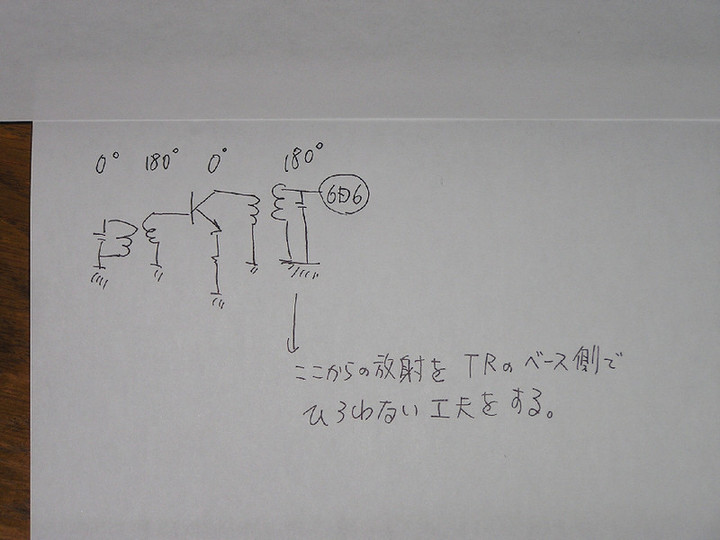 0° 180° 0° 180°
6D6
ここからの放射を TRのベース側で
ひろわない工夫をする。